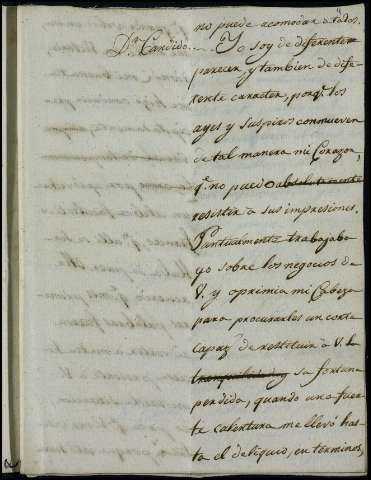 no puede acomodar a todos.
Dn. Candido.... Yo soy de diferente
parecer, y tambien de dife-
rente caracter, porq.e los
ayes y suspiros conmueven
de tal manera mi Corazon,
q.e no puedo absolutamente
resistir a sus impresiones.
Puntualmente trabajaba
yo sobre los negocios de
V. y oprimia mi Cabeza
para procurarles un corte
capaz de restituir à V. l
y su fortuna
perdida, quando una fuer-
te calentura me llevó has-
ta el deliquio, en terminos,